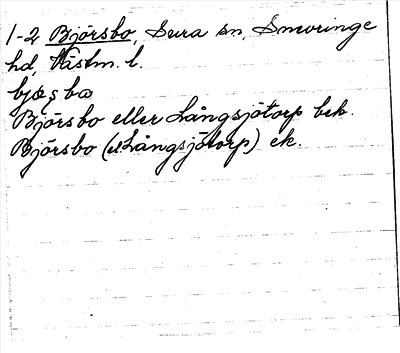 1-2 Björsbo, Sura sn, Snevringe
hd, Västm. l.
bjœʂbœ
Björsbo eller Långsjötorp bek.
Björsbo (el Långsjötorp) ek.